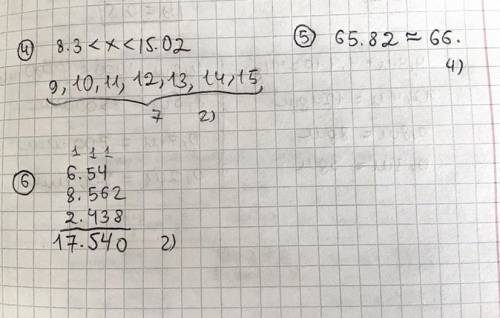 ④ 8.3 < x < 15.02
9, 10, 11, 12, 13, 14, 15
7 2)
⑤ 65.82 ≈ 66.
4)
⑥
1 1 1
6.54
8.562
2.438
17.540 2)